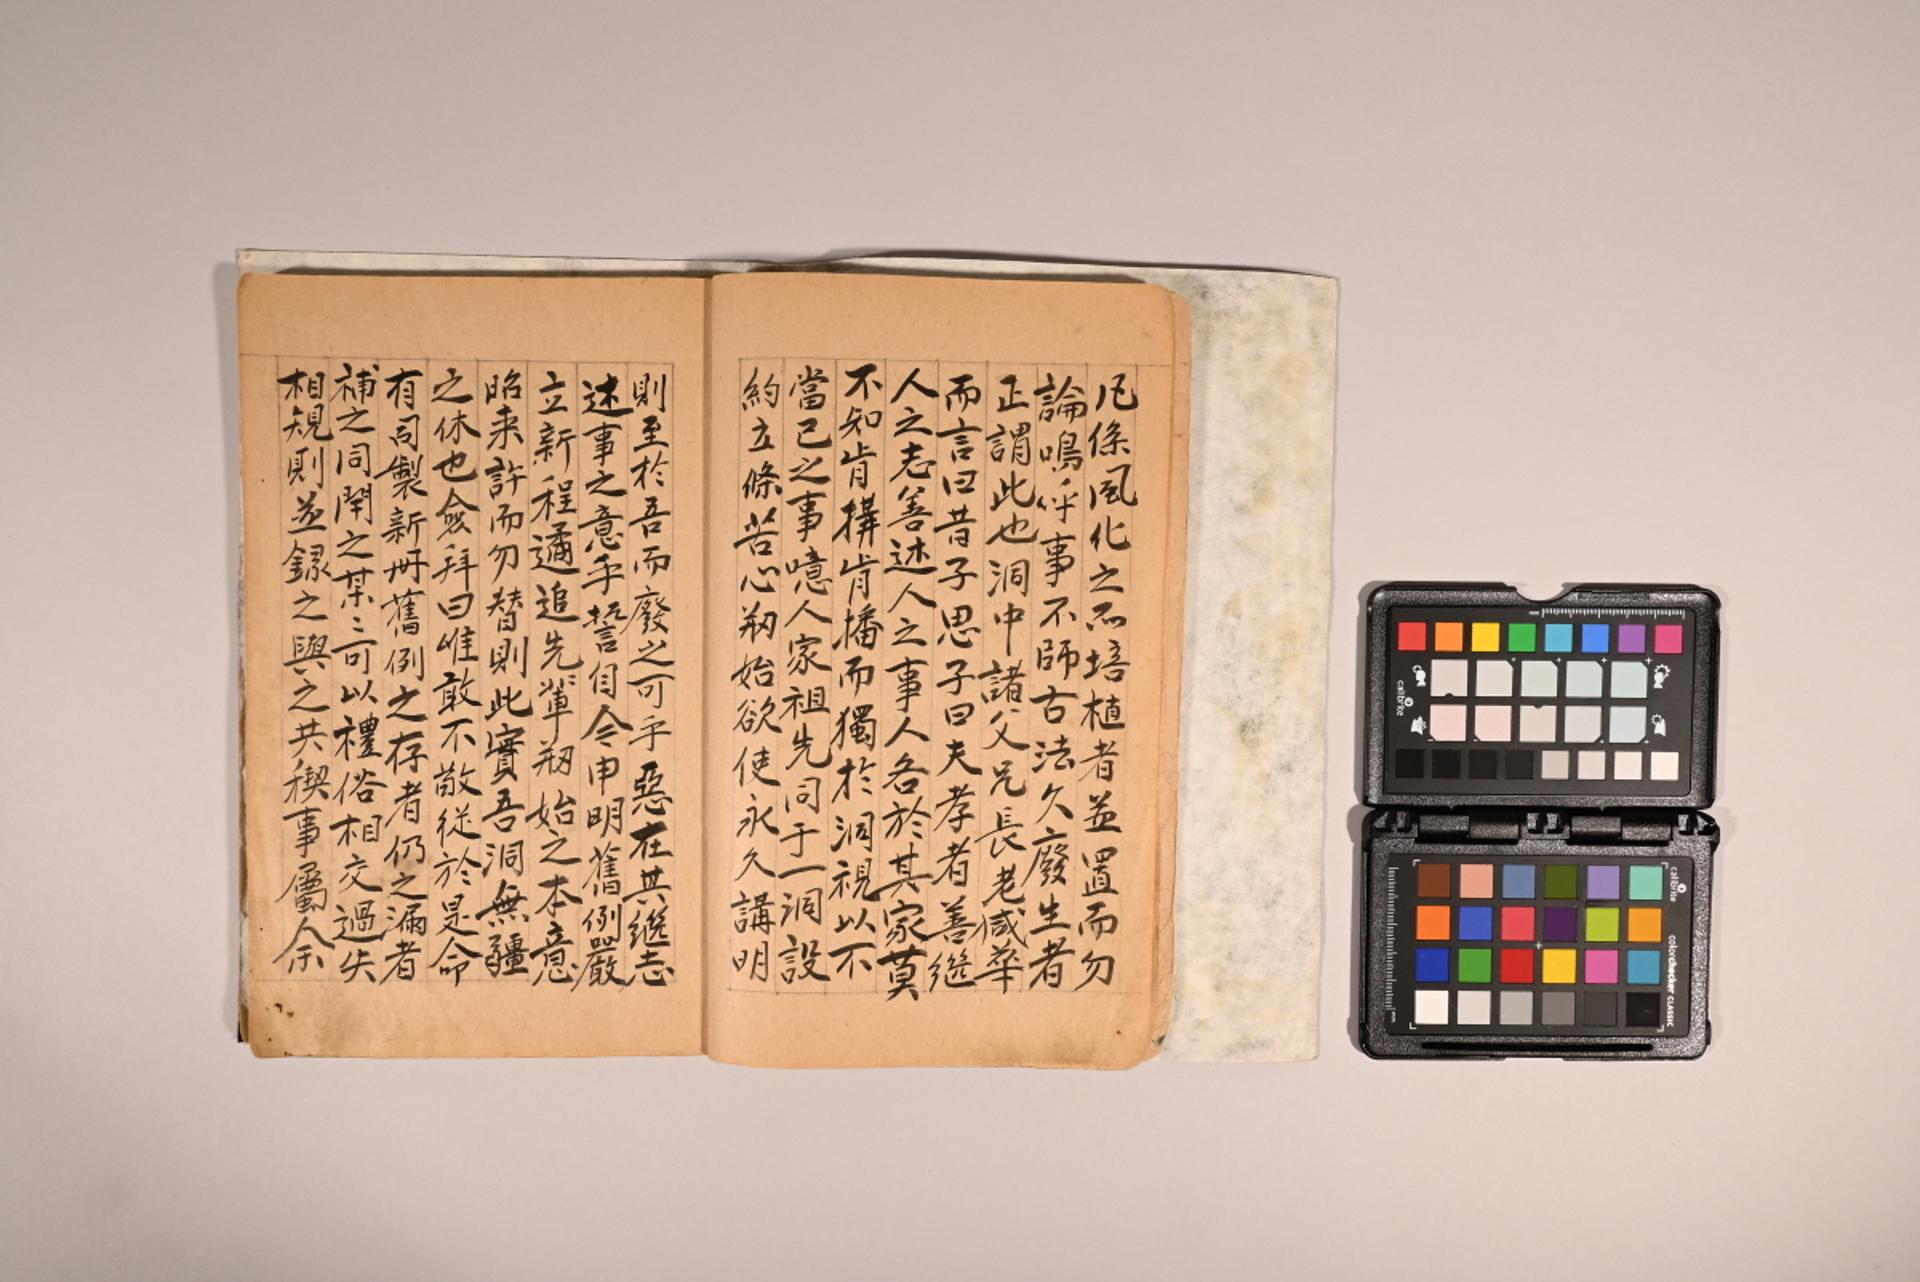 凡係風化之不培植者並置而勿
論嗚呼事不師古法久廢生者
正謂此也洞中諸父兄長老咸萃
而言曰昔子思子曰夫孝者善繼
人之志善述人之事人各於其家莫
不知肯搆肯播而獨於洞視以不
當己之事噫人家祖先同于一洞設
約立條苦心剏始欲使永久講明
則至於吾而廢之可乎惡在其繼志
述事之意乎誓自今申明舊例嚴
立新程遹追先輩剏始之本意
昭来許而勿替則此實吾洞無疆
之休也僉拜曰唯敢不敬從於是命
有司製新册舊例之存者仍之漏者
補之同閈之某〻可以禮俗相交過失
相規則並錄之與之共稧事屬余
calibrite
calibrite
colorchecker CLASSIC
mm